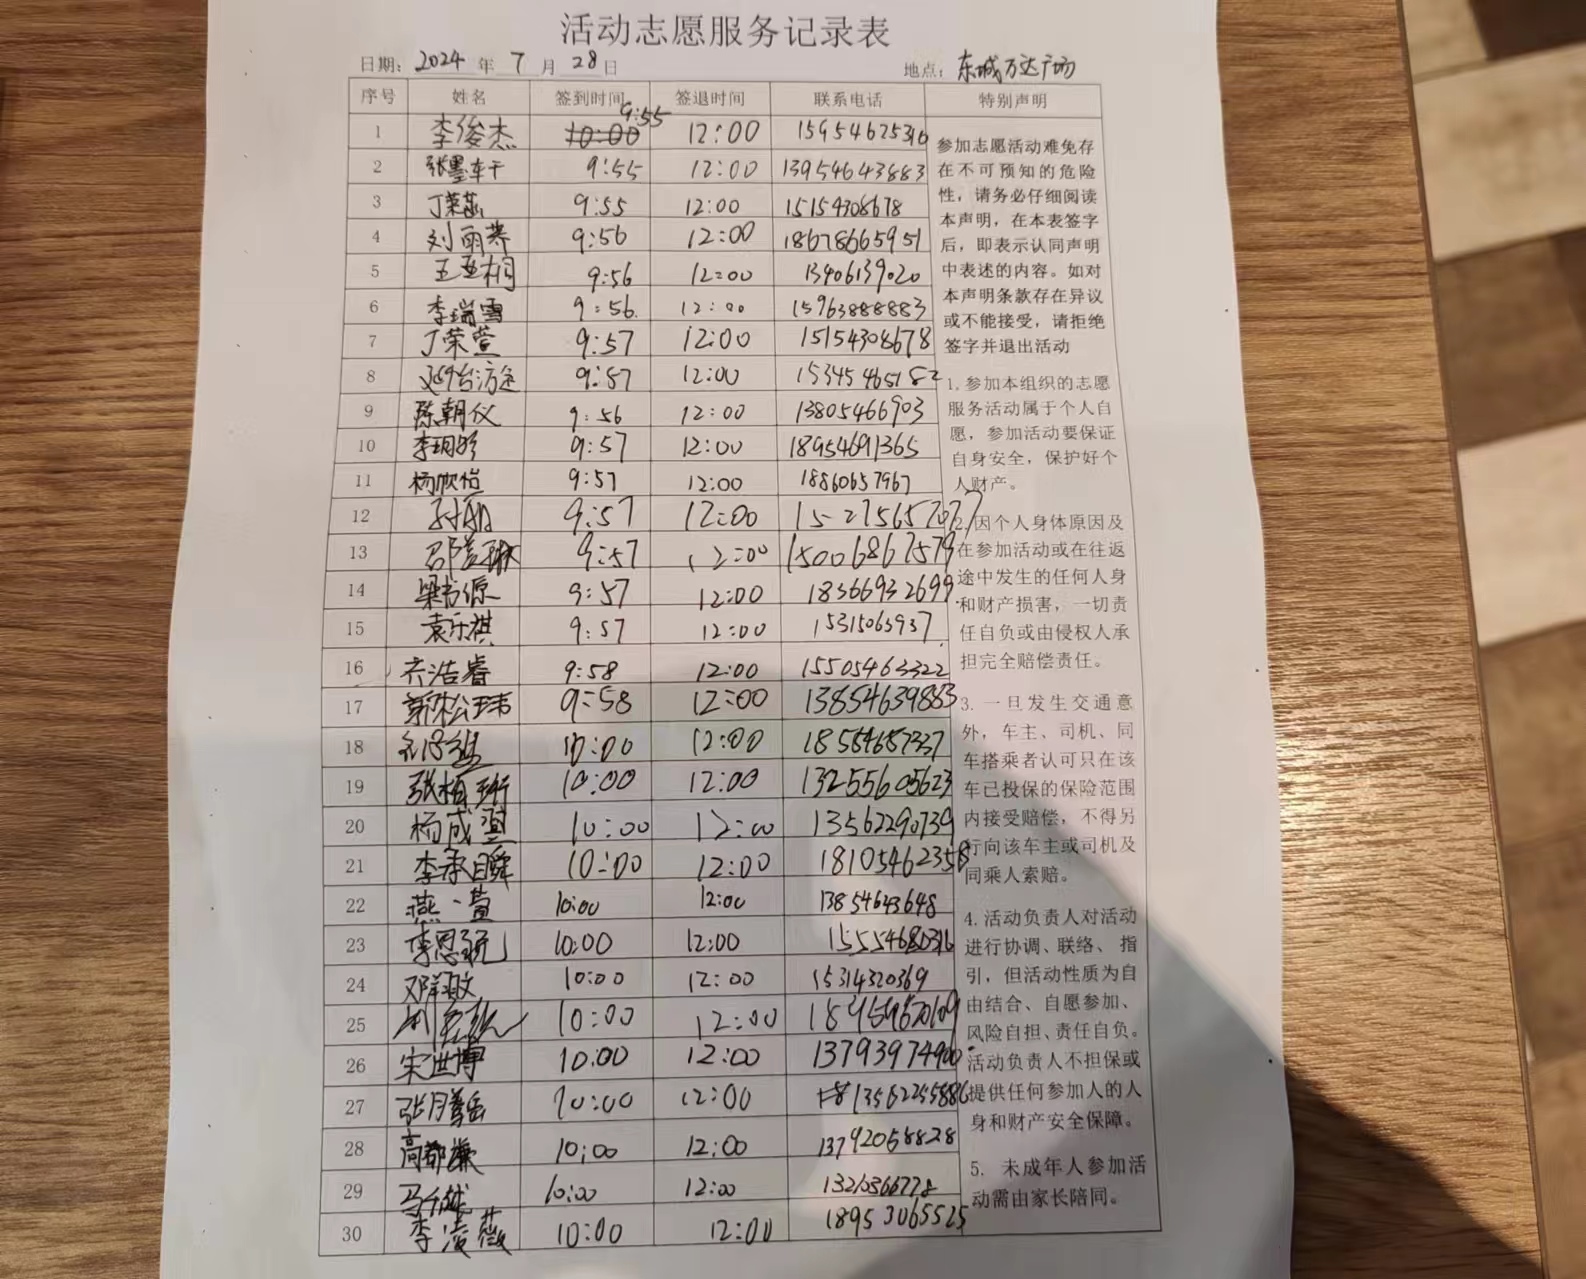 活动志愿服务记录表
日期: 2024 年 7 月 28 日 地点: 东城万达广场
序号 姓名 签到时间 签退时间 联系电话 特别声明
1 李俊杰 9:55 12:00
2 9:55 12:00 13954643883
3 9:55 12:00 15154308678
4 9:56 12:00 18678665951
5 9:56 12:00 13406139020
6 李瑞雪 9:56 12:00 15963888883
7 丁荣萱 9:57 12:00 15154308678
8 9:57 12:00 15345465182
9 陈朝仪 9:56 12:00 13805466903
10 9:57 12:00 18954691365
11 杨欣怡 9:57 12:00 18860657967
12 9:57 12:00 15275657077
13 9:57 12:00 15006867579
14 梁书源 9:57 12:00 18366932699
15 袁乐祺 9:57 12:00 15315065937
16 齐浩睿 9:58 12:00 15505463322
17 9:58 12:00 13854639883
18 10:00 12:00 18554657337
19 张桓珩 10:00 12:00 13255605623
20 杨成玺 10:00 12:00 13562290739
21 李承瞬 10:00 12:00 18105462358
22 10:00 12:00 13854643648
23 10:00 12:00
24 10:00 12:00 15314320369
25 10:00 12:00
26 宋世博 10:00 12:00
27 10:00 12:00
28 10:00 12:00 13792058828
29 10:00 12:00
30 李凌薇 10:00 12:00 18953065525
参加志愿活动难免存
在不可预知的危险
性，请务必仔细阅读
本声明，在本表签字
后，即表示认同声明
中表述的内容。如对
本声明条款存在异议
或不能接受，请拒绝
签字并退出活动
1. 参加本组织的志愿
服务活动属于个人自
愿，参加活动要保证
自身安全，保护好个
人财产。
2. 因个人身体原因及
在参加活动或在往返
途中发生的任何人身
和财产损害，一切责
任自负或由侵权人承
担完全赔偿责任。
3. 一旦发生交通意
外，车主、司机、同
车搭乘者认可只在该
车已投保的保险范围
内接受赔偿，不得另
行向该车主或司机及
同乘人索赔。
4. 活动负责人对活动
进行协调、联络、指
引，但活动性质为自
由结合、自愿参加、
风险自担、责任自负。
活动负责人不担保或
提供任何参加人的人
身和财产安全保障。
5. 未成年人参加活
动需由家长陪同。